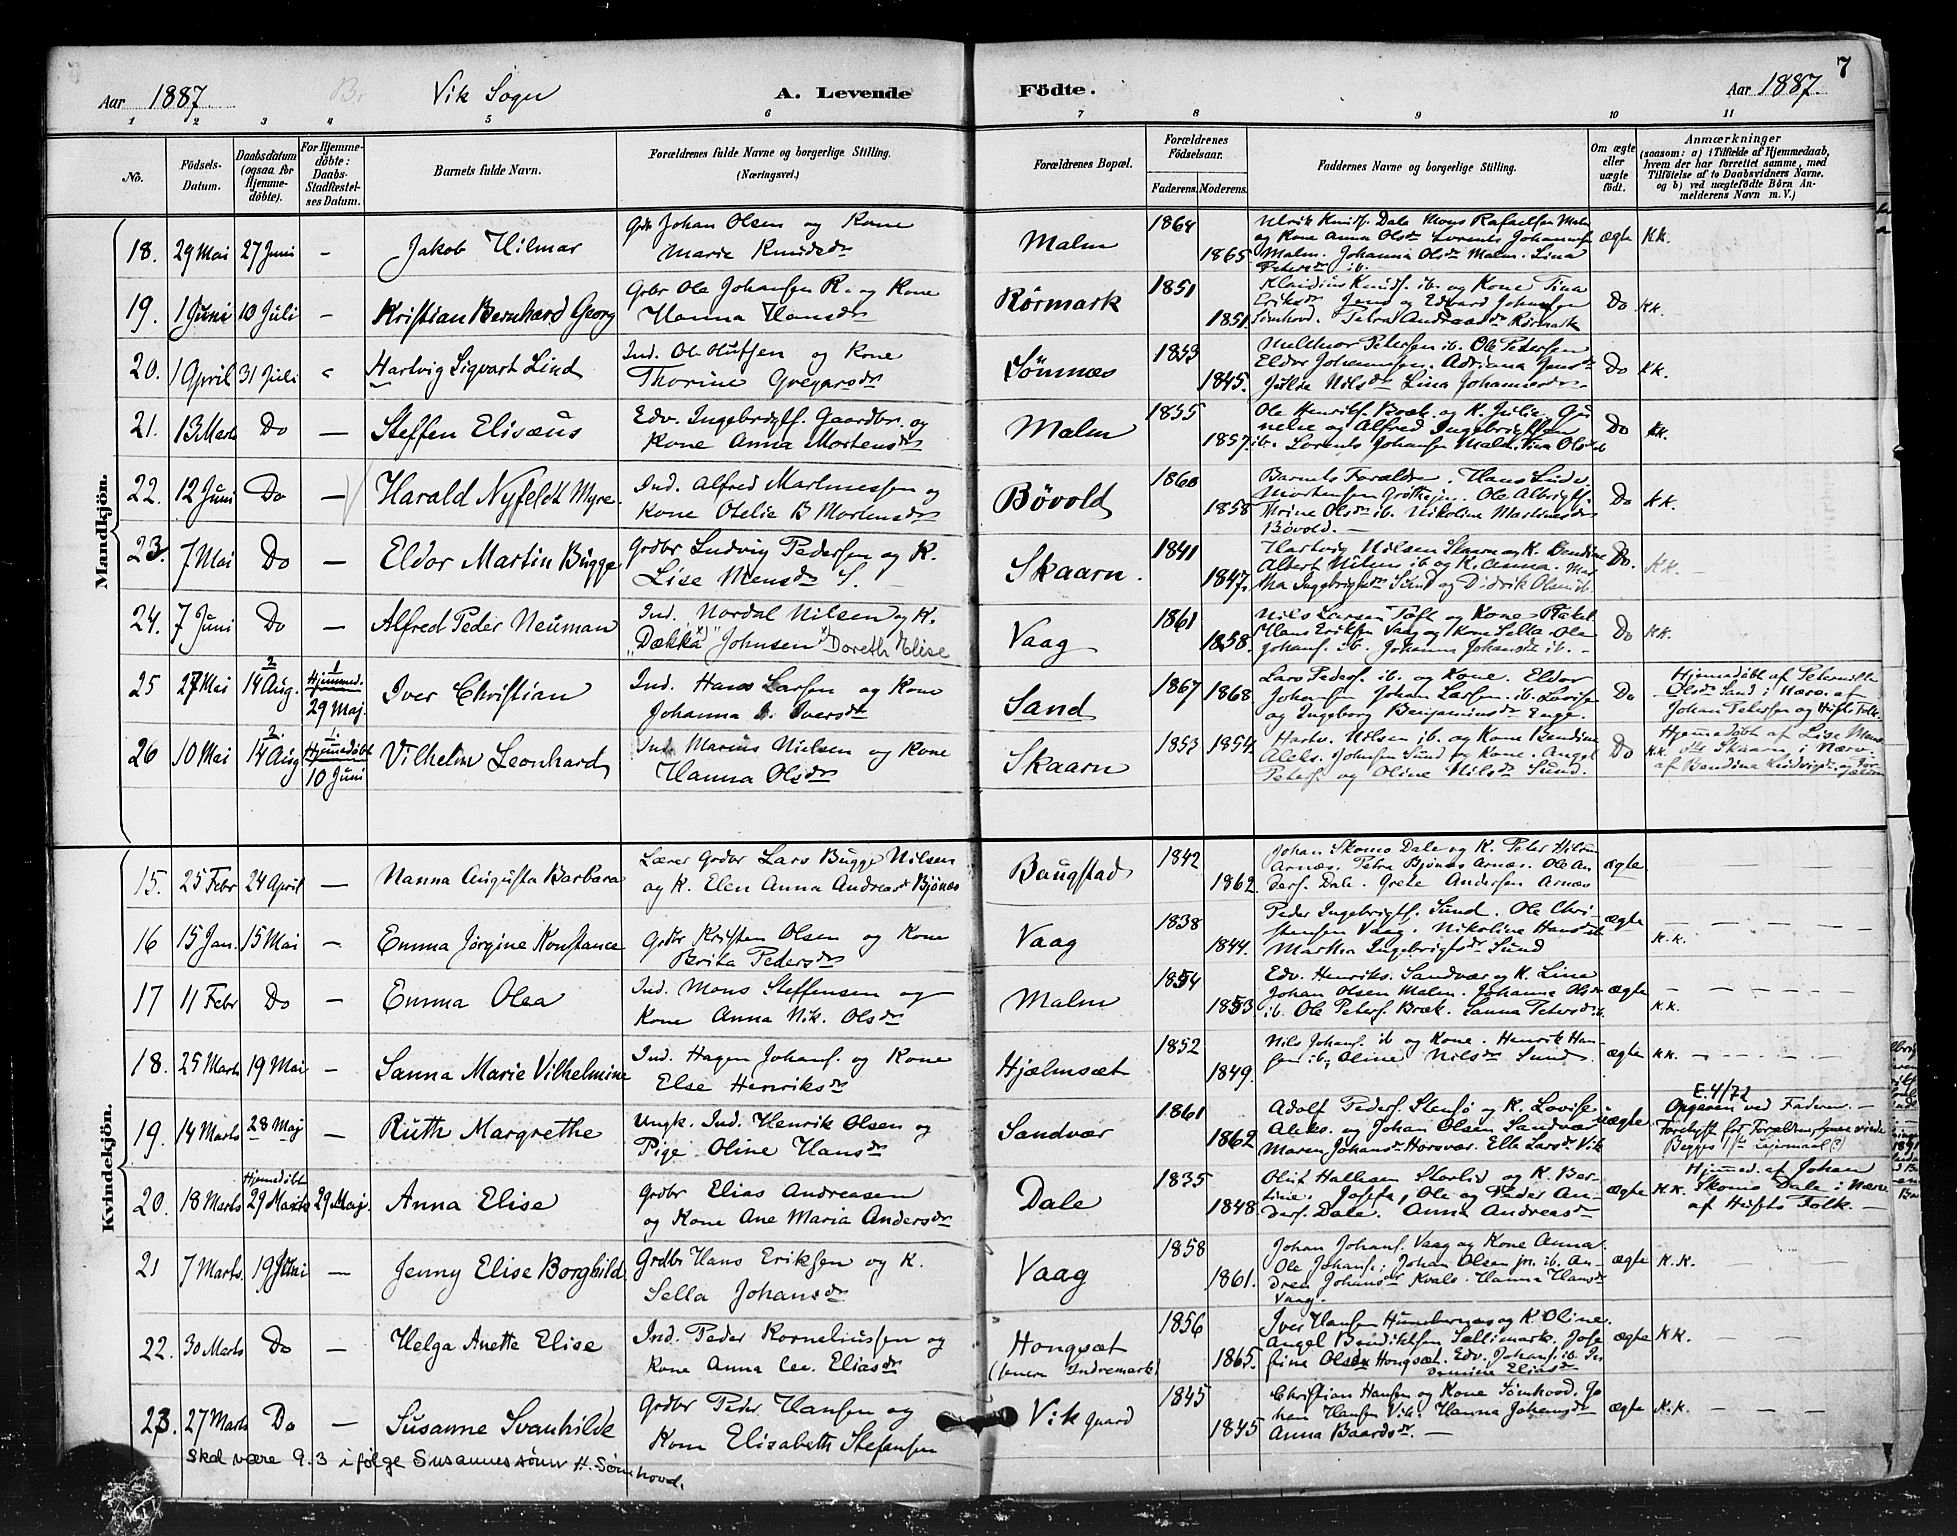 Aar 1887. Vik Sogn A. Levende Födte. Aar 1887. 7
1 2 3 4 5 6 7 8 9 10 11
No. Födsels-Datum. Daabsdatum (ogsaa for Hjemmedöbte). For Hjemmedöbte: Daabs-Stadfæstelses Datum. Barnets fulde Navn. Forældrenes fulde Navne og borgerlige Stilling. (Næringsvei.) Forældrenes Bopæl. Forældrenes Födselsaar. Faderens. Moderens. Faddernes Navne og borgerlige Stilling. Om ægte eller uægte födt. Anmærkninger (saasom: a) i Tilfælde af Hjemmedaab, hvem der har forrettet samme, med Tilföielse af to Daabsvidners Navne. og b) ved uægtefödte Börn Anmelderens Navn m. V.)
Mandkjön.
18. 29 Mai 27 Juni – Jakob Hilmar Grbr Johan Olsen og Kone Malm 1864 Ulrik Knuds. Dale Mons Rafaelsen Malm ægte K.K.
Marie Knudsdr 1865 og Kone Anna Olsdr Lorents Johannsen
Malm. Johanna Olsdr Malm. Lina
Petersdr ib.
19. 1 Juni 10 Juli – Kristian Bernhard Georg Grbr Ole Johansen R. og Kone Rörmark 1851 Klaudius Knuds. ib. og Kone Tina Do K.K.
Hanna Hansdr 1851 Eriksdr Jens og Edvard Johnsen
Sömhovd. Petra Andreasdr Rörmark
20. 1 April 31 Juli " Hartvig Sigvart Lind Ind. Ole Olufsen og Kone Sömnæs 1853 Melchior Petersen ib. Ole Pedersen Do K.K.
Thorine Gregarsdr 1845. Eldor Johannsen. Adriana Jensdr
Julie Nilsdr Lina Johannesdr –
21. 13 Marts Do – Steffen Elisæus Edv. Ingebrigts. Gaardbr. og Malm 1855 Ole Henriks. Bræk. og K. Julie. Do K.K.
Kone Anna Mortensdr 1857. og Alfred Ingebrigtsen
ib. Lorents Johansen Malm. Tina Olsdr ib
22. 12 Juni Do – Harald Nyfeldt Myre Ind. Alfred Martinessen og Bövold 1860 Barnets Forældre. Hans Do K.K.
Kone Otelie B Mortensdr 1858 Mortensen Ole Albrigts.
Thrine Olsdr ib. Nikoline Martinesdr
Bövold. –
23. 7 Mai Do – Eldor Martin Bugge Grdbr Ludvig Pedersen og K. Skaarn. 1841 Hartvig Nilsen Skaarn og K. Bendine Do. K.K. –
Lise Monsdr S. – 1847. Albert Nilsen ib og K. Anna. Mar-
tha Ingebrigtsdr Sund og Didrik Olsen ib
24. 7 Juni Do – Alfred Peder Neuman Ind. Nordal Nilsen og K. Vaag 1861 Nils Larsen Toft og Kone Do K.K.
"Dækka" Johnsen Doreth Elise 1858. Hans Eriksen Vaag og Kone Sella Ole
Johans. ib. Johanna Johansdr ib. –
25 27 Mai 2 14 Aug. 1 Hjemmed. 29 Maj. Iver Christian Ind. Hans Larsen og Kone Sand 1867 1868 Lars Peders. ib. og Kone. Eldor Do Hjemmedöbt af Peternille
Johanna Iversdr Johansen Johan Larsen. ib. Lovise Olsdr Sund i Nærv. af
og Ingeborg Benjaminsdr Enge. Johan Petersen og Hufts Folk.
26 10 Mai 2. 14 Aug 1. Hjemmedöbt 10 Juni Vilhelm Leonhard Ind. Marius Nielsen og Kone Skaarn 1853 1854. Hartv. Nilsen ib. og Kone Bendine Do Hjemmedöbt af Lise Mons-
Hanna Olsdr Aleks. Johnsen Sund og Kone. Angel K.K. dtr Skaarn i Nærv.
Peters. og Oline Nilsdr Sund. af Bendina Ludvigsdr og For-
ældrene
Kvindekjön.
15. 25 Febr 24 April – Nanna Augusta Barbara Lærer Grdbr Lars Bugge Nilsen Baugstad 1842 Johan Skomo Dale og K. Peter ægte
og K. Elen Anna Andreasdr Bjönes 1862. Arnæs. Petra Bjönes Arnæs. Ole An-
ders. Dale. Grete Andersen Arnæs
16 15 Jan. 15 Mai – Emma Jörgine Konstance Grdbr Kristen Olsen og Kone Vaag 1838 Peder Ingebrigts. Sund. Ole Chri- ægte – – – –
Berita Pedersdr 1844. stensen Vaag. Nikoline Hansdr ib K.K.
Martha Ingebrigtsdr Sund
17 11 Febr Do – Emma Olea Ind. Mons Steffensen og Malm 1854 Edv. Henriks. Sandvær og K. Line ægte – – – –
Kone Anna Nik. Olsdr 1853 Johan Olsen Malm. Johanna Olsdr K.K.
ib. Ole Peters. Bræk. Sanna Petersdr ib.
18. 25 Marts 19 Mai – Sanna Marie Vilhelmine Ind. Hagen Johans. og Kone Hjælmsæt 1852 Nils Johans. ib og Kone. Henrik Han- ægte K.K. – – – –
Else Henriksdr 1849. sen ib; Oline Nilsdr Sund.
19. 14 Marts 28 Maj – Ruth Margrethe Ungk. Ind. Henrik Olsen og Sandvær 1861 Adolf Peders. Stensö og K. Lovise uægte E. 4/72
Pige Oline Hansdr 1862 Aleks. og Johan Olsen Sandvær Opgiven ved Faderen. –
Maren Johansdr Horsvær. Elle Larsdr Vik Begges 1ste Leiermaal (?)
20. 18 Marts Hjemmedöbt 29 Marts 29 Maj. Anna Elise Grdbr Elias Andreasen Dale 1835 Oluf Hallesen Storlid og K. Ber- ægte K.K. Hjemmed. af Johan
og Kone Ane Maria Andersdr 1848. tine. Josefa, Ole og Peder An- Skomo Dale i Nærv
ders. Dale. Anna Andreasdr af Hufts Folk. –
21 7 Marts. 19 Juni – Jenny Elise Borghild Grdbr Hans Eriksen og K. Vaag 1858 Johan Johans. Vaag og Kone Anna. ægte K.K. – – –
Sella Johansdr 1861. Ole Johans.; Johan Olsen jn. ib. An-
dren Johansdr Kvals. Hanna Hansdr
Vaag.
22. 30 Marts Do – Helga Anette Elise Ind. Peder Korneliussen og Hongsæt 1856 Iver Hansen og K Oline. ægte K.K. – – –
Kone Anna Eliasdr (Indremark) 1865. Angel Bendiktsen Sællimark. Jose-
fine Olsdr Hongsæt. Edv. Johans. ib. In-
Eliasdr
23. 27 Marts Do – Susanne Svanhilde Grdbr Peder Hansen og Vik gaard 1845 Christian Hansen og Kone Sömhovd. Jo- ægte K.K. – – –
Kone Elisabeth Stefansen 1845 han Hansen Vik. Hanna Johansdr
Anna Baardsdr. –
Skal være 9.3 i følge Susannes sønn H. Sømhovd.